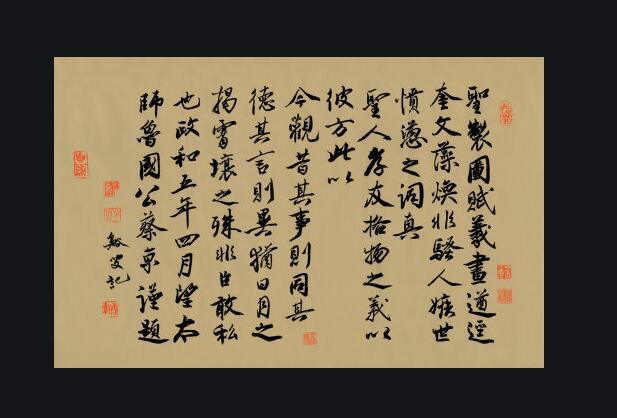 聖製圖賦羲畫遒逕
奎文藻煥非騷人嫉世
憤懣之詞真
聖人孝友拾物之義以
彼方此以
今觀昔其事則同其
德其言則異猶日月之
揭霄壤之殊非臣敢私
也政和五年四月望太
師魯國公蔡京謹題
叟記